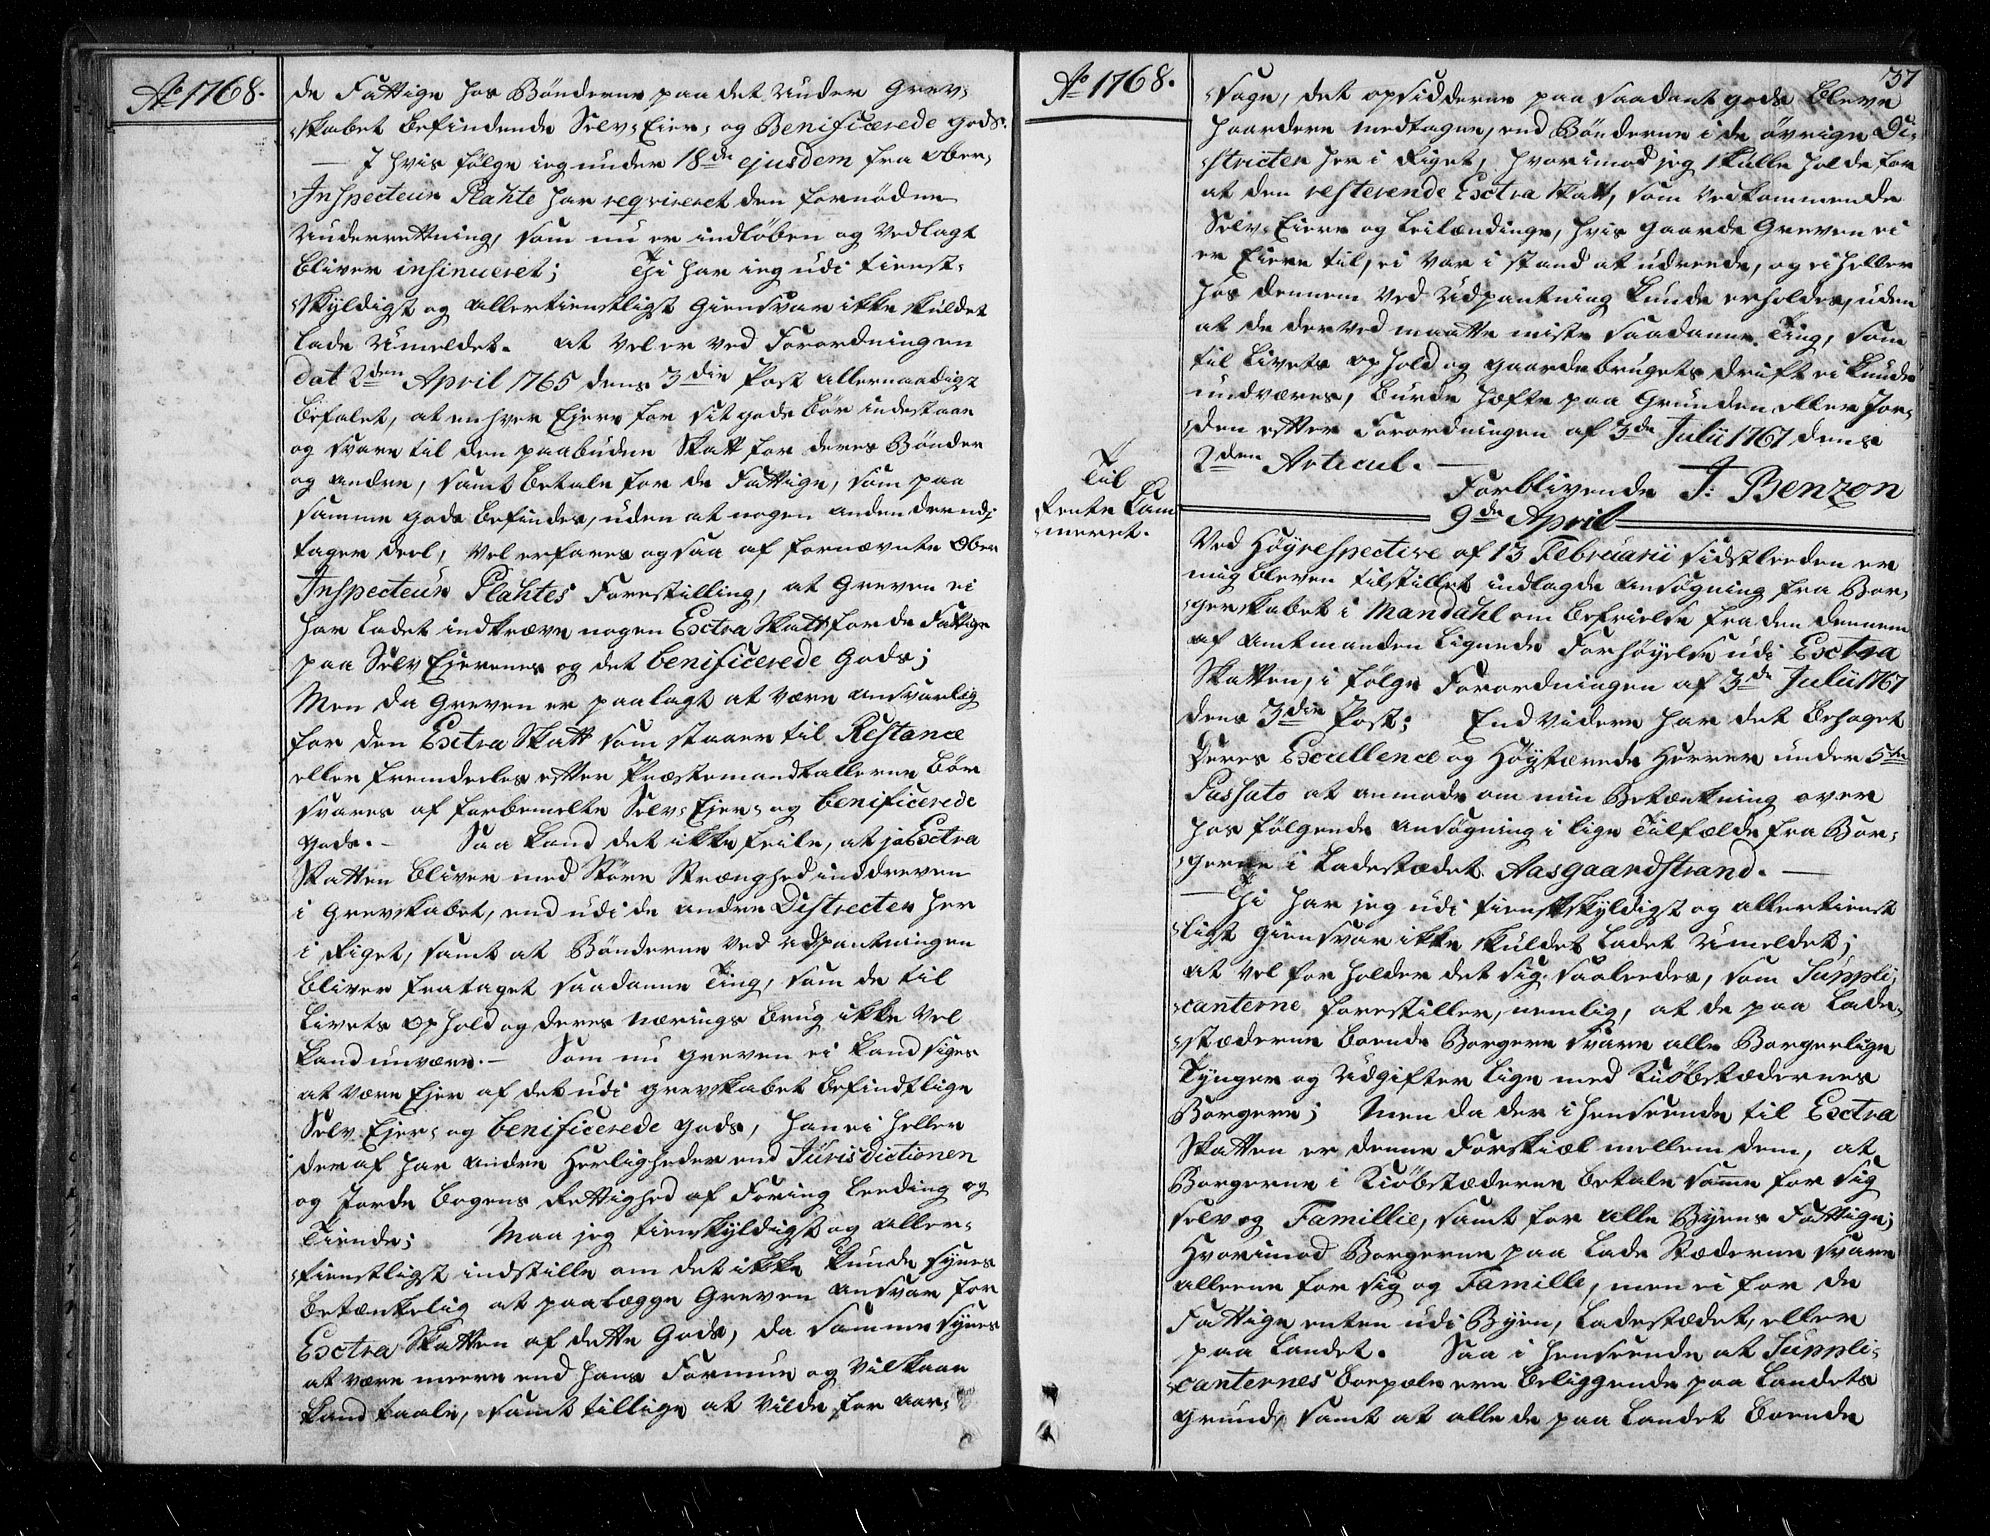 Ao 1768.
de Fattige hos Bønderne paa det under Grev-
skabet befindende Selv-Eier- og Beneficerede gods.
— I hvis følge ieg under 18de ejusdem fra Ober-
Inspecteur Plahte har reqvireret den fornødne
Underretning, som nu er indløben og vedlagt
bliver insinueret; Thi har ieg udi tienst-
skyldigst og allertienstligst Giensvar ikke skuldet
lade Umeldet. at vel er ved Forordningen
dat 2den April 1765 dens 3die Post allernaadigst
befalet, at enhver Ejere for sit gods bør indestaae
og svare til den paabudne Skatt for deres Bønder
og andre, samt betale for de Fattige, som paa
samme gods befindes, uden at nogen anden derudi
tager deel; Vel erfares ogsaa af fornævnte Ober
Inspecteur Plahtes Forestilling, at Greven ei
har ladet indkræve nogen Exctra Skatt for de Fattige
paa Selv Ejernes og det benificerede Gods;
Men da Greven er paalagt at være ansvarlig
for den Exctra Skatt som staaer til Restance
eller fremdeeles efter Præstemandtallerne bør
svares af forbemelte Selv-Ejer- og benificerede
gods. — Saa kand det ikke feile, at jo Exctra
Skatten bliver med større Strænghed inddreven
i Grevskabet, end udi de andre Distrecter her
i Riget, samt at Bønderne ved Udpantningen
bliver frataget saadanne Ting, som de til
Livets Ophold og deres nærings brug ikke vel
kand unvære. — Som nu Greven ei kand siges
at være Ejer af det udi grevskabet befindtlige
Selv Ejer- og benificerede gods, han ei heller
deraf har andre Herligheder end Jurisdictionen
og Jorde bogens Rettighed af Foring Leeding og
Tiende; Maa jeg tienskyldigst og aller-
tienstligst indstille om det ikke kunde synes
betænkelig at paalægge Greven ansvar for
Exctra Skatten af dette Gods, da samme synes
at være meere end hans Formue og Vilkaar
kand taale, samt tillige at vilde for aar-
Ao 1768.
757
-sage, det opsidderne paa saadant gods bleve
haardere medtagne, end Bønderne i de øvrige Di-
stricter her i Riget, hvorimod jeg skulle holde for
at den resterende Exctra Skatt, som vedkommende
Selv-Eiere og Leilændinge, hvis gaarde Greven ei
er Eiere til, ei var i stand at udreede, og ei heller
hos dennem ved Udpantning kunde erholdes, uden
at de derved maatte miste saadanne Ting, som
til Livets ophold og gaardebrugets drift ei kunde
undværes, burde hæfte paa Grunden eller Jor-
den efter Forordningen af 3de Julii 1767 dens
2den Articul. —
Forblivende J: Benzon
9de April
Til
Rente Cam
meret.
Ved Høyrespective af 13 Februarii sidstleeden er
mig bleven tilstillet indlagde ansøgning fra Bor-
gerskabet i Mandahl om befrielse fra den dennem
af Amtmanden lignede Forhøyelse udi Exctra
Skatten, i følge Forordningen af 3de Julii 1767
dens 3die Post; End videre har det behaget
Deres Excellence og Høystærede Herrer under 5te
Passato at anmode om min Betænkning over
hos følgende ansøgning i lige Tilfælde fra Bor-
gerne i Ladestædet Aasgaardstrand. —
— Thi har jeg udi tienstskyldigst og allertienst
ligst giensvar ikke skuldet ladet Umeldet;
at vel forholder det sig saaleedes, som Suppli-
canterne forestiller, nemlig, at de paa Lade-
stæderne boende Borgere svare alle Borgerlige
Tynger og Udgifter lige med Kiøbstædernes
Borgere; Men da der i henseende til Exctra
Skatten er denne Forskiæl mellem dem, at
Borgerne i Kiøbstæderne betale samme for sig
selv og Famillie, samt for alle Byens Fattige;
Hvorimod Borgerne paa Lade Stæderne svare
alleene for sig og Famille, men ei for de
Fattige enten udi Byen, Ladestædet, eller
paa Landet. Saa i henseende at Suppli-
canternes boepæle ere beliggende paa Landets
grund, samt at alle de paa Landet boende